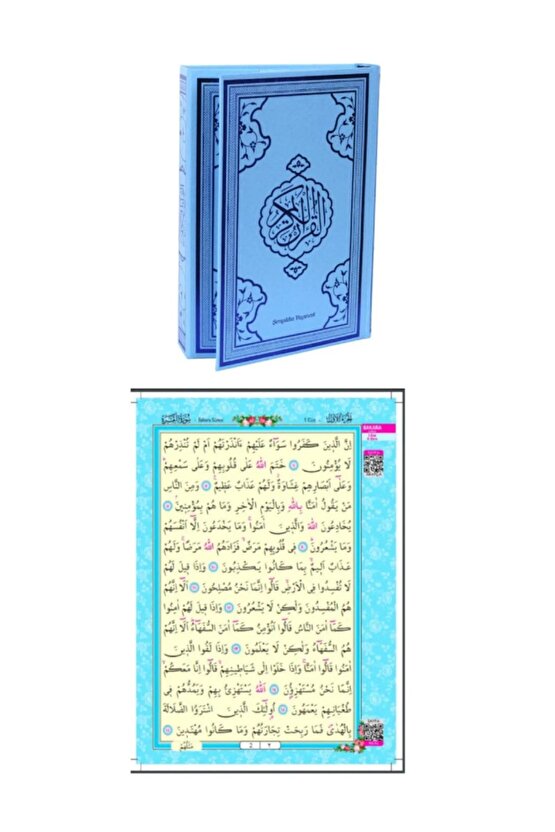 القرآن الكريم
سُورَةُ الْبَقَرَةِ - Bakara Sûresi
1.Cüz -
BAKARA
اِنَّ الَّذ۪ينَ كَفَرُوا سَوَٓاءٌ عَلَيْهِمْ ءَاَنْذَرْتَهُمْ اَمْ لَمْ تُنْذِرْهُمْ
لَا يُؤْمِنُونَ ﴿٦﴾ خَتَمَ اللّٰهُ عَلٰى قُلُوبِهِمْ وَعَلٰى سَمْعِهِمْ
وَعَلٰٓى اَبْصَارِهِمْ غِشَاوَةٌ وَلَهُمْ عَذَابٌ عَظ۪يمٌ ﴿٧﴾ وَمِنَ النَّاسِ
مَنْ يَقُولُ اٰمَنَّا بِاللّٰهِ وَبِالْيَوْمِ الْاٰخِرِ وَمَا هُمْ بِمُؤْمِن۪ينَ ﴿٨﴾
يُخَادِعُونَ اللّٰهَ وَالَّذ۪ينَ اٰمَنُوا وَمَا يَخْدَعُونَ اِلَّٓا اَنْفُسَهُمْ
وَمَا يَشْعُرُونَ ﴿٩﴾ ف۪ي قُلُوبِهِمْ مَرَضٌ فَزَادَهُمُ اللّٰهُ مَرَضًا وَلَهُمْ
عَذَابٌ اَل۪يمٌ بِمَا كَانُوا يَكْذِبُونَ ﴿١٠﴾ وَاِذَا ق۪يلَ لَهُمْ
لَا تُفْسِدُوا فِي الْاَرْضِ قَالُٓوا اِنَّمَا نَحْنُ مُصْلِحُونَ ﴿١١﴾ اَلَٓا اِنَّهُمْ
هُمُ الْمُفْسِدُونَ وَلٰكِنْ لَا يَشْعُرُونَ ﴿١٢﴾ وَاِذَا ق۪يلَ لَهُمْ اٰمِنُوا
كَمَٓا اٰمَنَ النَّاسُ قَالُٓوا اَنُؤْمِنُ كَمَٓا اٰمَنَ السُّفَهَٓاءُ اَلَٓا اِنَّهُمْ
هُمُ السُّفَهَٓاءُ وَلٰكِنْ لَا يَعْلَمُونَ ﴿١٣﴾ وَاِذَا لَقُوا الَّذ۪ينَ
اٰمَنُوا قَالُٓوا اٰمَنَّا وَاِذَا خَلَوْا اِلٰى شَيَاط۪ينِهِمْ قَالُٓوا اِنَّا مَعَكُمْ
اِنَّمَا نَحْنُ مُسْتَهْزِؤُ۫نَ ﴿١٤﴾ اَللّٰهُ يَسْتَهْزِئُ بِهِمْ وَيَمُدُّهُمْ ف۪ي
طُغْيَانِهِمْ يَعْمَهُونَ ﴿١٥﴾ اُو۬لٰٓئِكَ الَّذ۪ينَ اشْتَرَوُا الضَّلَالَةَ
بِالْهُدٰى فَمَا رَبِحَتْ تِجَارَتُهُمْ وَمَا كَانُوا مُهْتَد۪ينَ ﴿١٦﴾
مَثَلُهُمْ
2 ٢